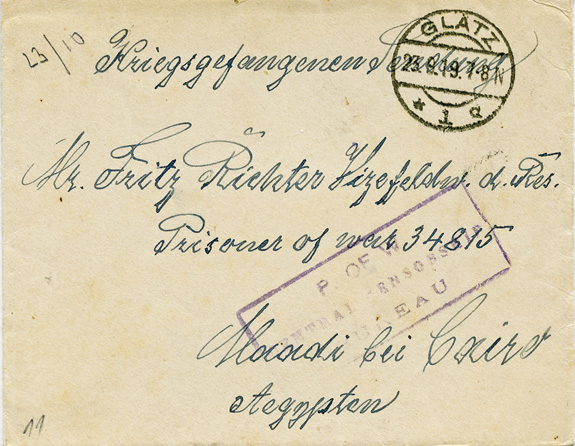 23/10
Kriegsgefangenen Sendung
GLATZ
23.9.19.7-8N
* 1 d
Mr. Fritz Richter Vizefeldw. d. Res.
Prisoner of war 34815
P. OF W.
CENTRAL CENSORSHIP
BUREAU
Maadi bei Cairo
Aegypten
11